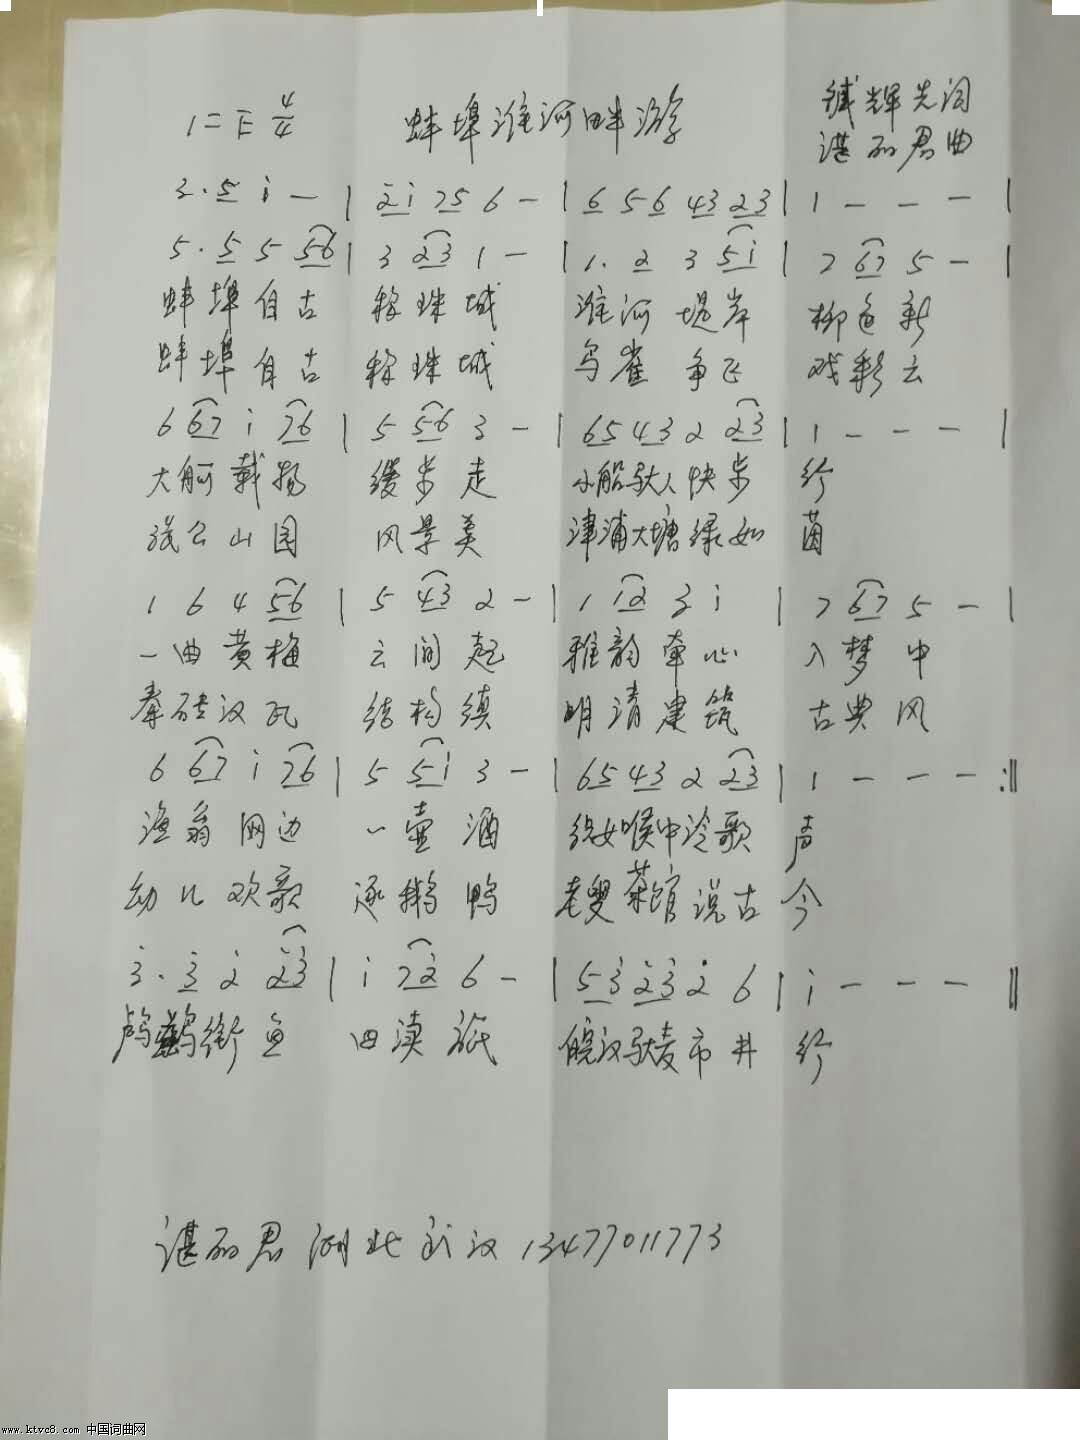 1=E 4/4 蚌埠淮河畔游 辉先词
谌丽君曲
3·5 i - | 2i 75 6 - | 6 5 6 43 23 | 1 - - - |
5·5 5 56 | 3 23 1 - | 1·2 3 5i | 7 67 5 - |
蚌埠自古 称珠城 淮河堤岸 柳色新
蚌埠自古 称珠城 鸟雀争飞 戏彩云
6 67 i 76 | 5 56 3 - | 65 43 2 23 | 1 - - - |
大舸载物 缓步走 小船驮人快步 行
张公山园 风景美 津浦大塘绿如 茵
1 6 4 56 | 5 43 2 - | 1 12 3 i | 7 67 5 - |
一曲黄梅 云间起 雅韵牵心 入梦中
秦砖汉瓦 结构缜 明清建筑 古典风
6 67 i 76 | 5 5i 3 - | 65 43 2 23 | 1 - - - :‖
渔翁网边 一壶酒 船女喉中泠歌 声
幼儿欢歌 逐鹅鸭 老叟茶馆说古 今
3·3 2 23 | i 72 6 - | 53 23 2 6 | i - - - ‖
鸬鹚衔鱼 四渎 皖汉驮麦市井 行
谌丽君 湖北武汉 13477011773
www.ktvc8.com 中国词曲网